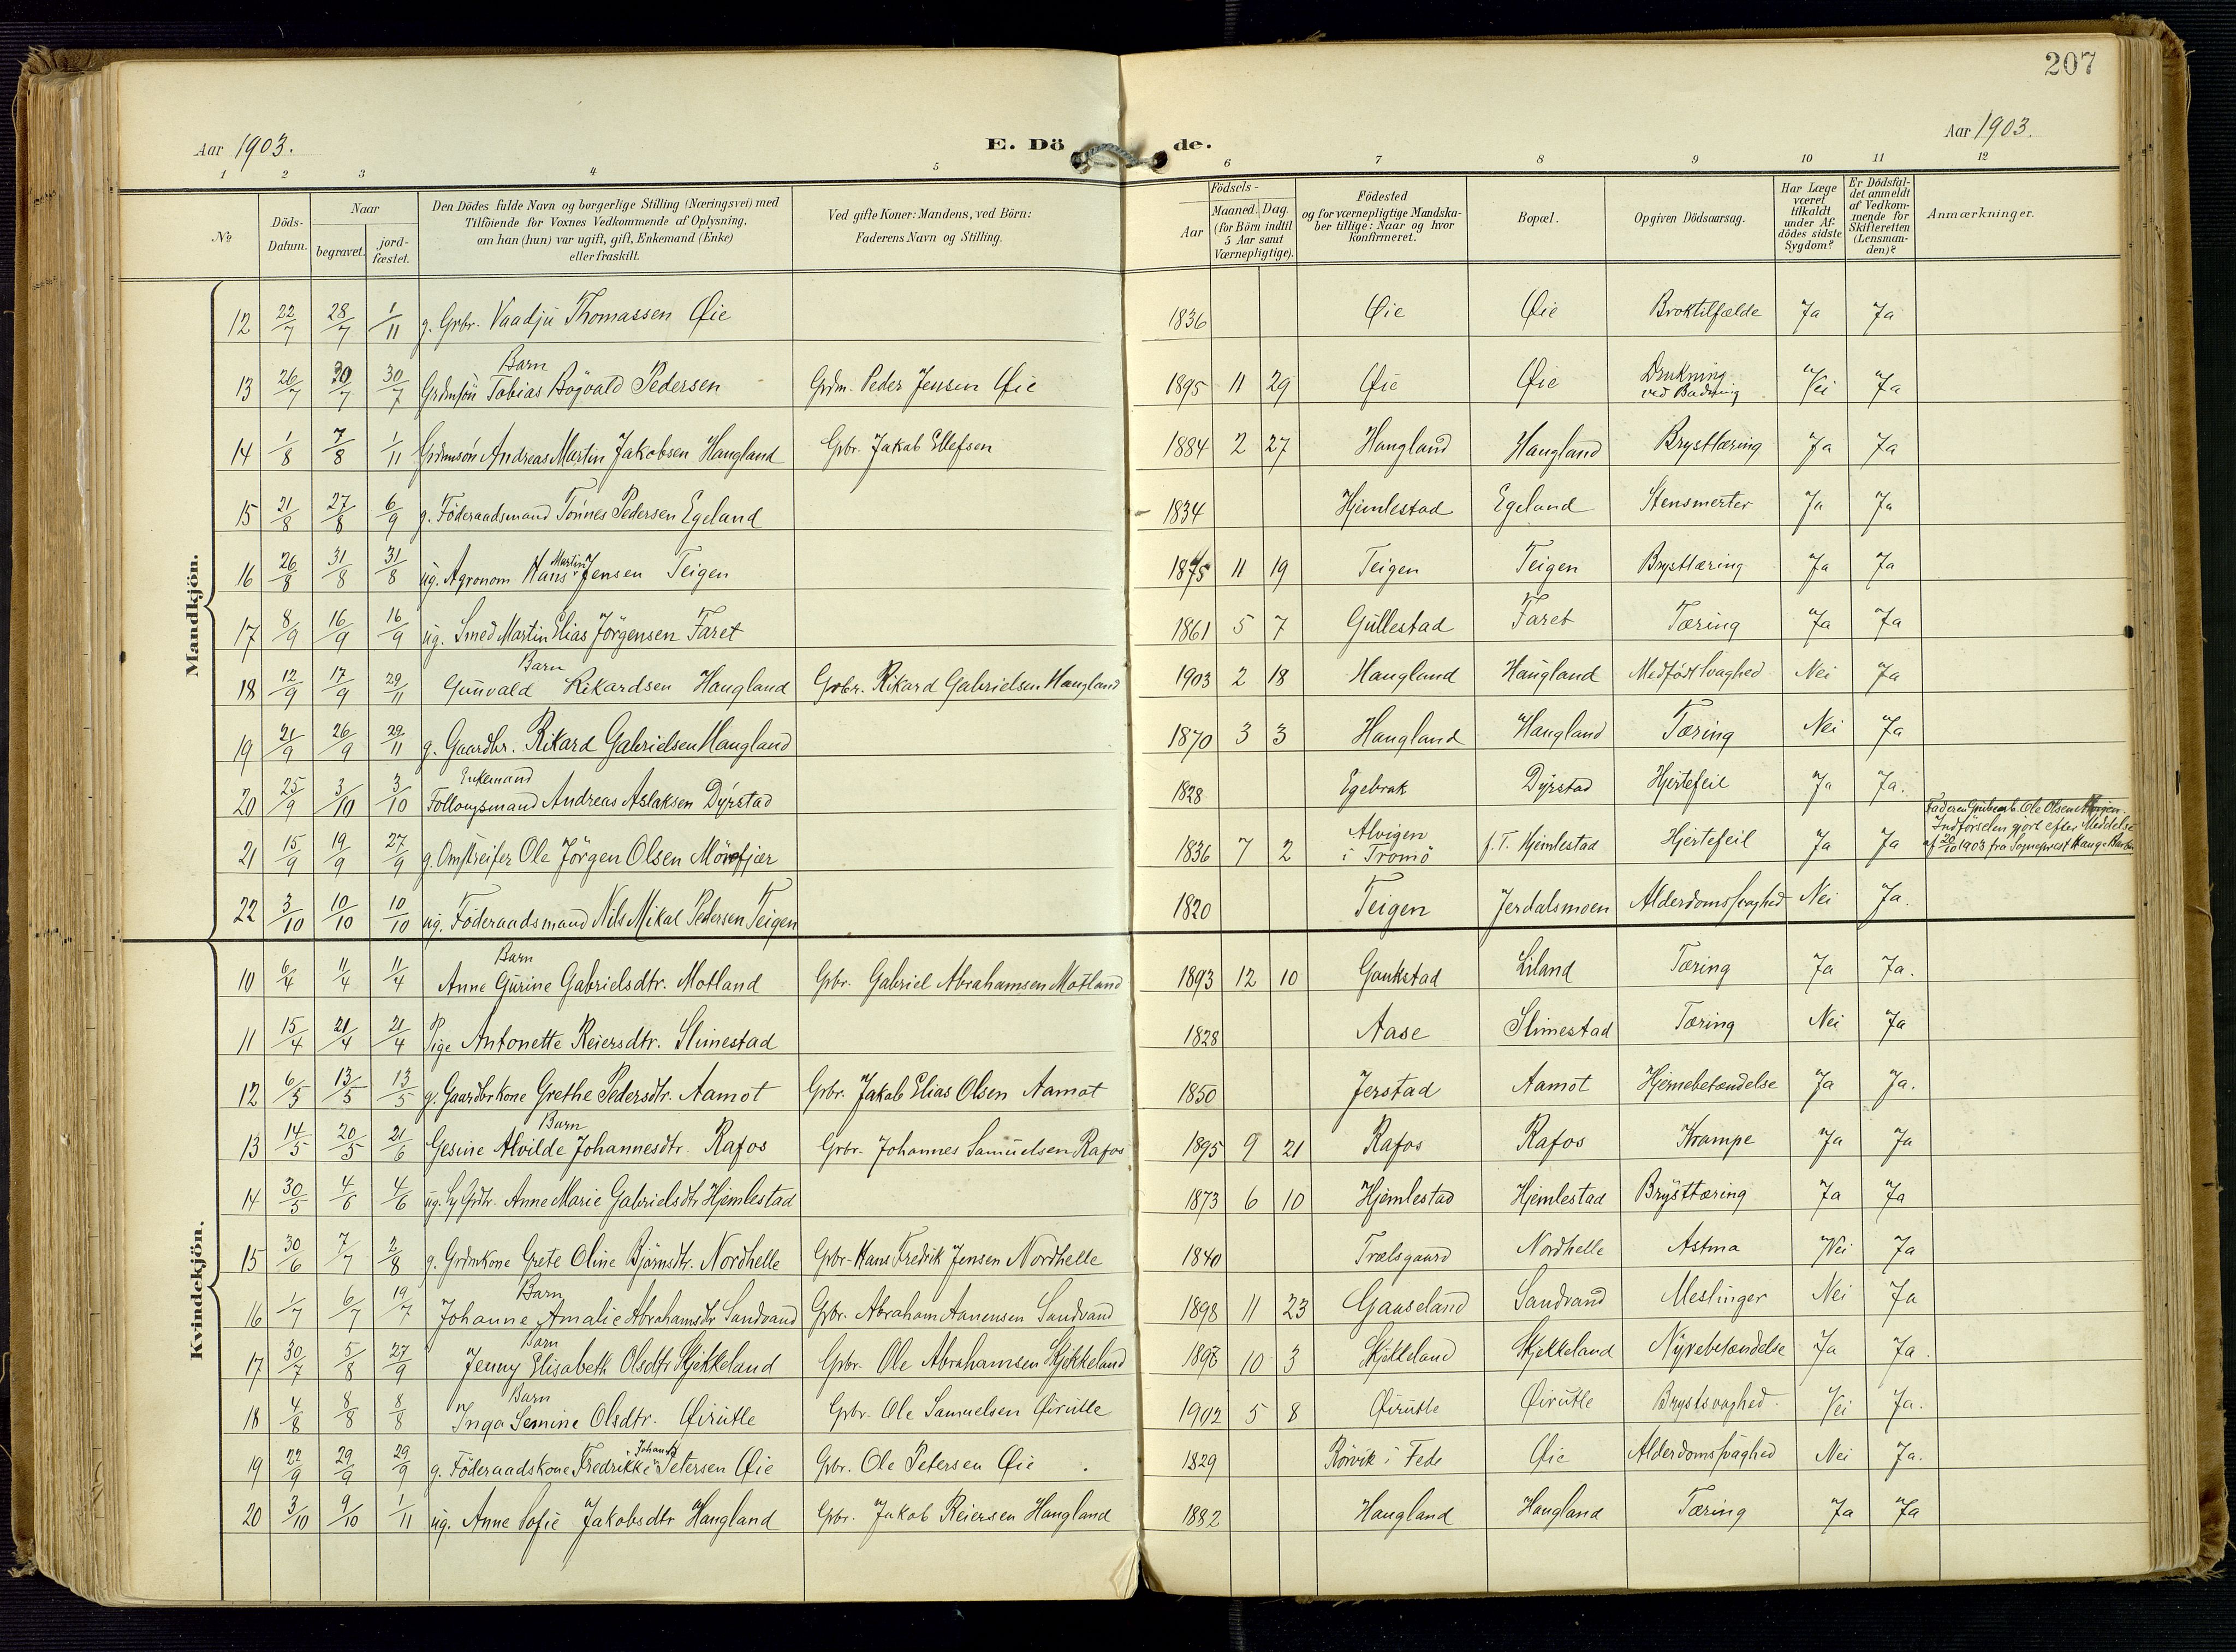 207
Aar 1903.
E. Dö de.
Aar 1903.
1 2 3 4 5 6 7 8 9 10 11 12
No
Döds-Datum.
Naar
begravet.
jord-fæstet.
Den Dödes fulde Navn og borgerlige Stilling (Næringsvei) med
Tilföiende for Voxnes Vedkommende af Oplysning,
om han (hun) var ugift, gift, Enkemand (Enke)
eller fraskilt.
Ved gifte Koner: Mandens, ved Börn:
Faderens Navn og Stilling.
Födsels-
Aar
Maaned. Dag
(for Börn indtil
5 Aar samt
Værnepligtige).
Födested
og for værnepligtige Mandska-
ber tillige: Naar og hvor
konfirmeret.
Bopæl.
Opgiven Dödsaarsag.
Har Læge
været
tilkaldt
under Af-
dödes sidste
Sygdom?
Er Dödsfal-
det anmeldt
af Vedkom-
mende for
Skifteretten
(Lensman-
den)?
Anmærkninger.
Mandkjön.
12 22/7 28/7 1/11 g. Grbr. Vaadju Thomassen Øie 1836 Øie Øie Broktilfælde Ja Ja
Barn
13 26/7 30/7 30/7 Grdmsøn Tobias Bogvald Pedersen Grdm. Peder Jensen Øie 1895 11 29 Øie Øie Drukning ved Badning Nei Ja
14 1/8 7/8 1/11 Grdmsön Andreas Martin Jakobsen Haugland Gbr. Jakob Ellefsen 1884 2 27 Haugland Haugland Brysttæring Ja Ja
15 21/8 27/8 6/9 g. Föderaadsmand Tönnes Pedersen Egeland 1834 Hjemlestad Egeland Stensmerter Ja Ja
16 26/8 31/8 31/8 ug. Agronom Hans Martin Jensen Teigen 1875 11 19 Teigen Teigen Brysttæring Ja Ja
17 8/9 16/9 16/9 ug. Smed Martin Elias Jörgensen Faret 1861 5 7 Gullestad Faret Tæring Ja Ja
Barn
18 12/9 17/9 29/11 Gunvald Rikardsen Haugland Grbr. Rikard Gabrielsen Haugland 1903 2 18 Haugland Haugland Medfödt Svaghed Nei Ja
19 21/9 26/9 29/11 g. Gaardbr. Rikard Gabrielsen Haugland 1870 3 3 Haugland Haugland Tæring Nei Ja
Enkemand
20 25/9 3/10 3/10 Follougsmand Andreas Aslaksen Dyrstad 1828 Egebrak Dyrstad Hjertefeil Ja Ja.
21 15/9 19/9 27/9 g. Omstreifer Ole Jörgen Olsen 1836 7 2 Alvigen i Tromö f. T. Hjemlestad Hjertefeil Ja Ja
Faderen Ole Olsen
Indförselen gjort efter Meddelse
af 20/10 1903 fra Sogneprest
22 3/10 10/10 10/10 ug. Föderaadsmand Nils Mikal Pedersen Teigen 1820 Teigen Jerdalsmoen Alderdomssvaghed Nei Ja.
Kvindekjön.
Barn
10 6/4 11/4 11/4 Anne Gurine Gabrielsdtr. Motland Gbr. Gabriel Abrahamsen Motland 1893 12 10 Gaukstad Liland Tæring Ja Ja.
11 15/4 21/4 21/4 Pige Antonette Reiersdtr. Slimestad 1828 Aase Slimestad Tæring Nei Ja
12 6/5 13/5 13/5 g. Gaardbrkone Grethe Pedersdtr. Aamot Gbr. Jakob Elias Olsen Aamot 1850 Jerstad Aamot Hjernebetændelse Ja Ja.
Barn
13 14/5 20/5 21/6 Gesine Alvilde Johannesdtr. Rafos Grbr. Johannes Samuelsen Rafos 1895 9 21 Rafos Rafos Krampe Ja Ja
14 30/5 4/6 4/6 ug. Anne Marie Gabrielsdtr Hjemlestad 1873 6 10 Hjemlestad Hjemlestad Brysttæring Ja Ja
15 30/6 7/7 2/8 g. Grdmkone Grete Oline Björnsdtr. Nordhelle Gbr. Hans Fredrik Jensen Nordhelle 1840 Trælsgaard Nordhelle Astma Nei Ja
Barn
16 1/7 6/7 19/7 Johanne Amalie Abrahamsdtr Sandvand Gbr. Abraham Aanensen Sandvand 1898 11 23 Gaaseland Sandvand Meslinger Nei Ja
Barn
17 30/7 5/8 27/9 Jenny Elisabeth Olsdtr Skjekkeland Gbr. Ole Abrahamsen Skjekkeland 10 3 Skjekkeland Skjekkeland Nyrebetændelse Ja Ja.
Barn
18 4/8 8/8 8/8 Inga Semine Olsdtr. Øirutle Gbr. Ole Samuelsen Øirutle 1902 5 8 Øirutle Øirutle Brystsvaghed. Nei Ja.
19 22/9 29/9 29/9 g. Föderaadskone Fredrikke Petersen Øie Gbr. Ole Petersen Øie 1829 Rörvik i Fede Øie Alderdomssvaghed Nei Ja.
20 3/10 9/10 1/11 ug. Anne Sofie Jakobsdtr Haugland Gbr. Jakob Reiersen Haugland 1882 Haugland Haugland Tæring Ja Ja